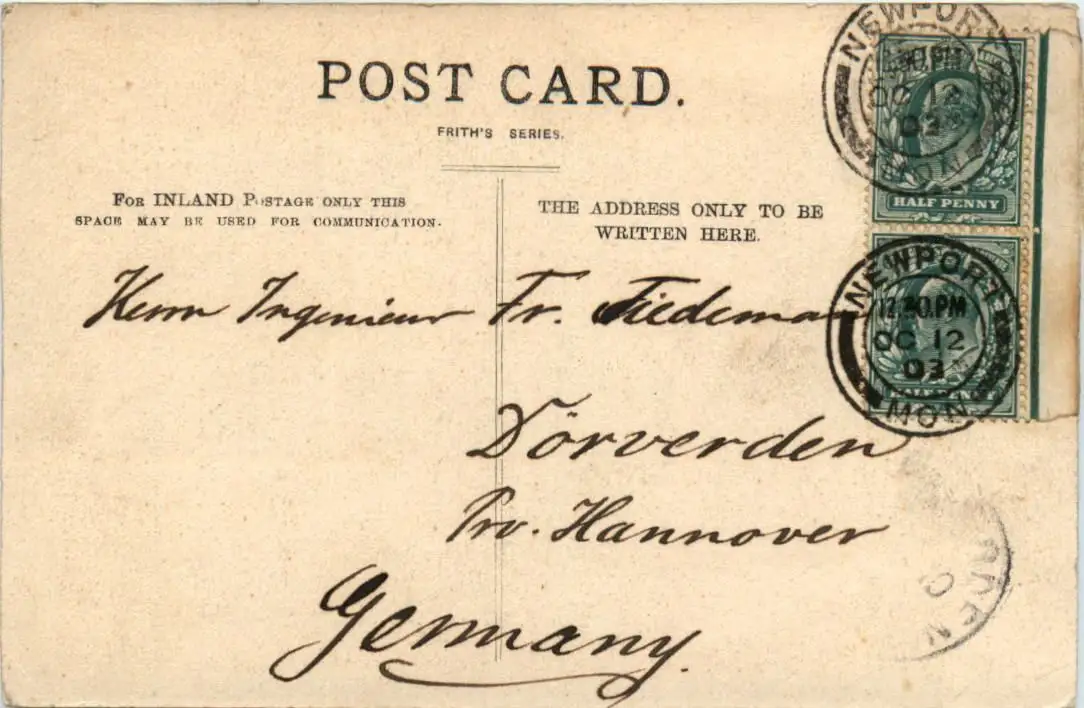 POST CARD.
FRITH'S SERIES.
FOR INLAND POSTAGE ONLY THIS
SPACE MAY BE USED FOR COMMUNICATION.
THE ADDRESS ONLY TO BE
WRITTEN HERE.
Herrn Ingenieur Fr. Tiedemann
Dörverden
Prv. Hannover
Germany.
NEWPORT
OC 12
03
HALF PENNY
NEWPORT
12.30.PM
OC 12
03
MON